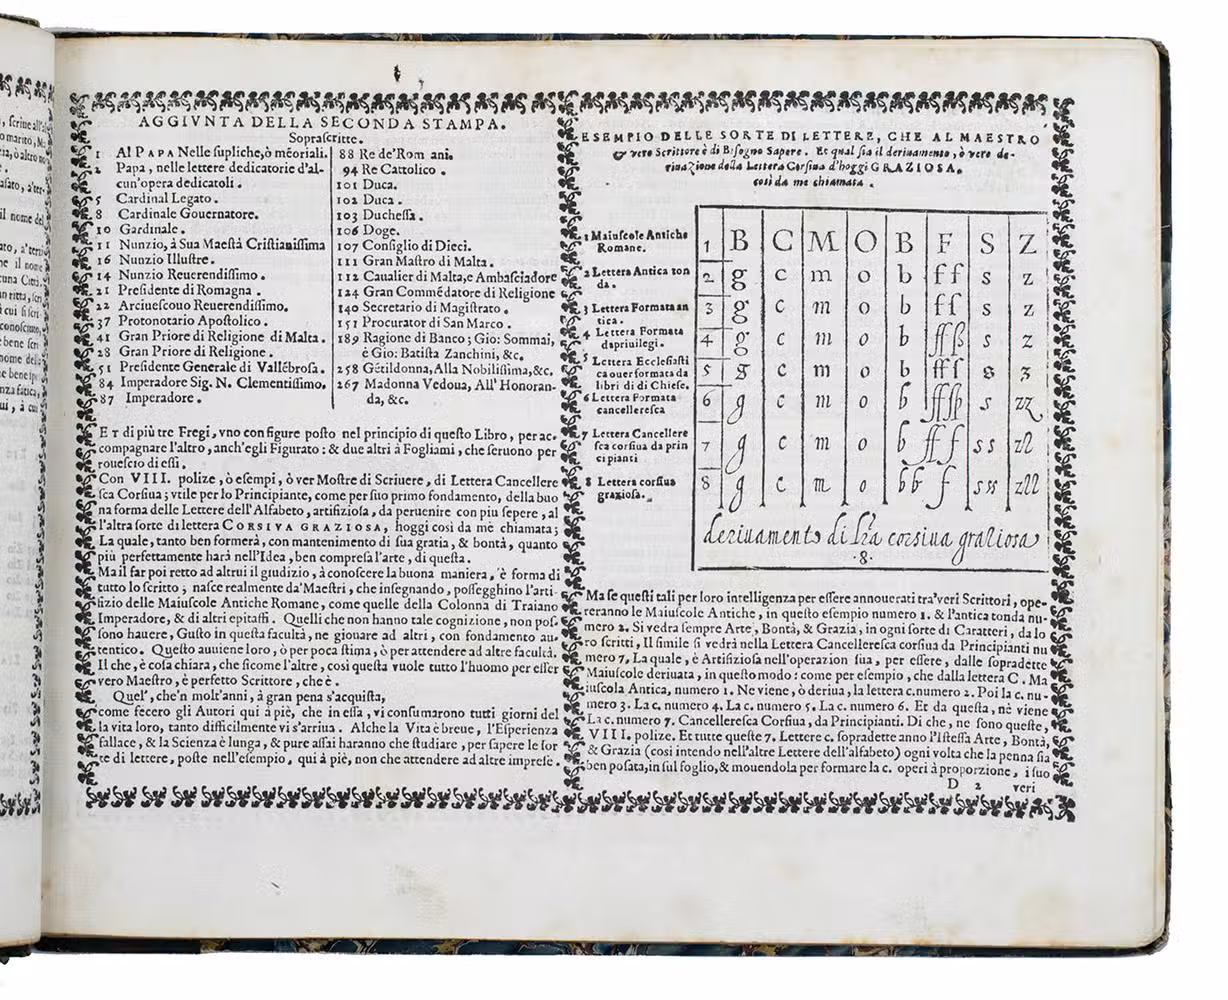 AGGIVNTA DELLA SECONDA STAMPA.
Sopraſcritte.
1 Al PAPA Nelle ſupliche, ò mẽoriali.
2 Papa, nelle lettere dedicatorie d'al-
cun'opera dedicatoli.
5 Cardinal Legato.
8 Cardinale Gouernatore.
10 Gardinale.
11 Nunzio, à Sua Maeſtà Criſtianiſſima
16 Nunzio Illuſtre.
14 Nunzio Reuerendiſſimo.
21 Preſidente di Romagna.
22 Arciueſcouo Reuerendiſſimo.
37 Protonotario Apoſtolico.
41 Gran Priore di Religione di Malta.
28 Gran Priore di Religione.
51 Preſidente Generale di Vallẽbroſa.
84 Imperadore Sig. N. Clementiſſimo.
87 Imperadore.
88 Re de'Rom ani.
94 Re Cattolico.
101 Duca.
102 Duca.
103 Ducheſſa.
106 Doge.
107 Conſiglio di Dieci.
111 Gran Maſtro di Malta.
112 Caualier di Malta, e Ambaſciadore
124 Gran Commẽdatore di Religione
140 Secretario di Magiſtrato.
151 Procurator di San Marco.
189 Ragione di Banco; Gio: Sommai,
è Gio: Batiſta Zanchini, &c.
258 Gẽtildonna, Alla Nobiliſſima, &c.
267 Madonna Vedoua, All' Honoran-
da, &c.
ET di più tre Fregi, vno con figure poſto nel principio di queſto Libro, per ac-
compagnare l'altro, anch'egli Figurato: & due altri à Fogliami, che ſeruono per
roueſcio di eſſi.
Con VIII. polize, ò eſempi, ò ver Moſtre di Scriuere, di Lettera Cancellere
ſca Corſiua; vtile per lo Principiante, come per ſuo primo fondamento, della buo
na forma delle Lettere dell'Alfabeto, artifizioſa, da peruenire con piu ſepere, al
l'altra ſorte di lettera CORSIVA GRAZIOSA, hoggi coſi da mè chiamata;
La quale, tanto ben formerà, con mantenimento di ſua gratia, & bontà, quanto
più perfettamente harà nell'Idea, ben compreſa l'arte, di queſta.
Ma il far poi retto ad altrui il giudizio, à conoſcere la buona maniera, è forma di
tutto lo ſcritto; naſce realmente da'Maeſtri, che inſegnando, poſſegghino l'arti-
fizio delle Maiuſcole Antiche Romane, come quelle della Colonna di Traiano
Imperadore, & di altri epitaffi. Quelli che non hanno tale cognizione, non poſ-
ſono hauere, Guſto in queſta facultà, ne giouare ad altri, con fondamento au-
tentico. Queſto auuiene loro, ò per poca ſtima, ò per attendere ad altre facultà.
Il che, è coſa chiara, che ſicome l'altre, cosi queſta vuole tutto l'huomo per eſſer
vero Maeſtro, è perfetto Scrittore, che è.
Quel', che'n molt'anni, à gran pena s'acquiſta,
come fecero gli Autori qui à piè, che in eſſa, vi conſumarono tutti giorni del
la vita loro, tanto difficilmente vi s'arriua. Alche la Vita è breue, l'Eſperienza
fallace, & la Scienza è lunga, & pure aſſai haranno che ſtudiare, per ſapere le ſor
te di lettere, poſte nell'eſempio, qui à piè, non che attendere ad altre impreſe.
ESEMPIO DELLE SORTE DI LETTERE, CHE AL MAESTRO
& vero Scrittore è di Biſogno Sapere. Et qual ſia il deriuamento, ò vero de-
riuazione della Lettera Corſiua d'hoggi GRAZIOSA.
coſi da me chiamata.
1 Maiuſcole Antiche
Romane.
2 Lettera Antica ton
da.
3 Lettera Formata an
tica.
4 Lettera Formata
da priuilegi.
5 Lettera Eccleſiaſti
ca ouer formata da
libri di di Chieſe.
6 Lettera Formata
cancellereſca
7 Lettera Cancellere
ſca corſiua da prin
cipianti
8 Lettera corſiua
grazioſa.
1 B C M O B F S Z
2 g c m o b ff s z
3 g c m o b ff s z
4 g c m o b ſſ ß s z
5 g c m o b fff s z
6 g c m o b ſſſb s zz
7 g c m o b ff f ss zz
8 g c m o bb f sss zzz
deriuamento di lr̃a corsiua graZiosa
·8·
Ma ſe queſti tali per loro intelligenza per eſſere annouerati tra'veri Scrittori, ope-
reranno le Maiuſcole Antiche, in queſto eſempio numero 1. & l'antica tonda nu-
mero 2. Si vedra ſempre Arte, Bontà, & Grazia, in ogni ſorte di Caratteri, da lo
ro ſcritti, Il ſimile ſi vedrà nella Lettera Cancellereſca corſiua da Principianti nu
mero 7, La quale, è Artifizioſa nell'operazion ſua, per eſſere, dalle ſopradette
Maiuſcole deriuata, in queſto modo: come per eſempio, che dalla lettera C. Ma
iuſcola Antica, numero 1. Ne viene, ò deriua, la lettera c. numero 2. Poi la c. nu-
mero 3. La c. numero 4. La c. numero 5. La c. numero 6. Et da queſta, nè viene
La c. numero 7. Cancellereſca Corſiua, da Principianti. Di che, ne ſono queſte,
VIII. polize. Et tutte queſte 7. Lettere c. ſopradette anno l'Iſteſſa Arte, Bontà,
& Grazia (coſi intendo nell'altre Lettere dell'alfabeto) ogni volta che la penna ſia
ben poſata, in ſul foglio, & mouendola per formare la c. operi à proporzione, i ſuo
D 2 veri